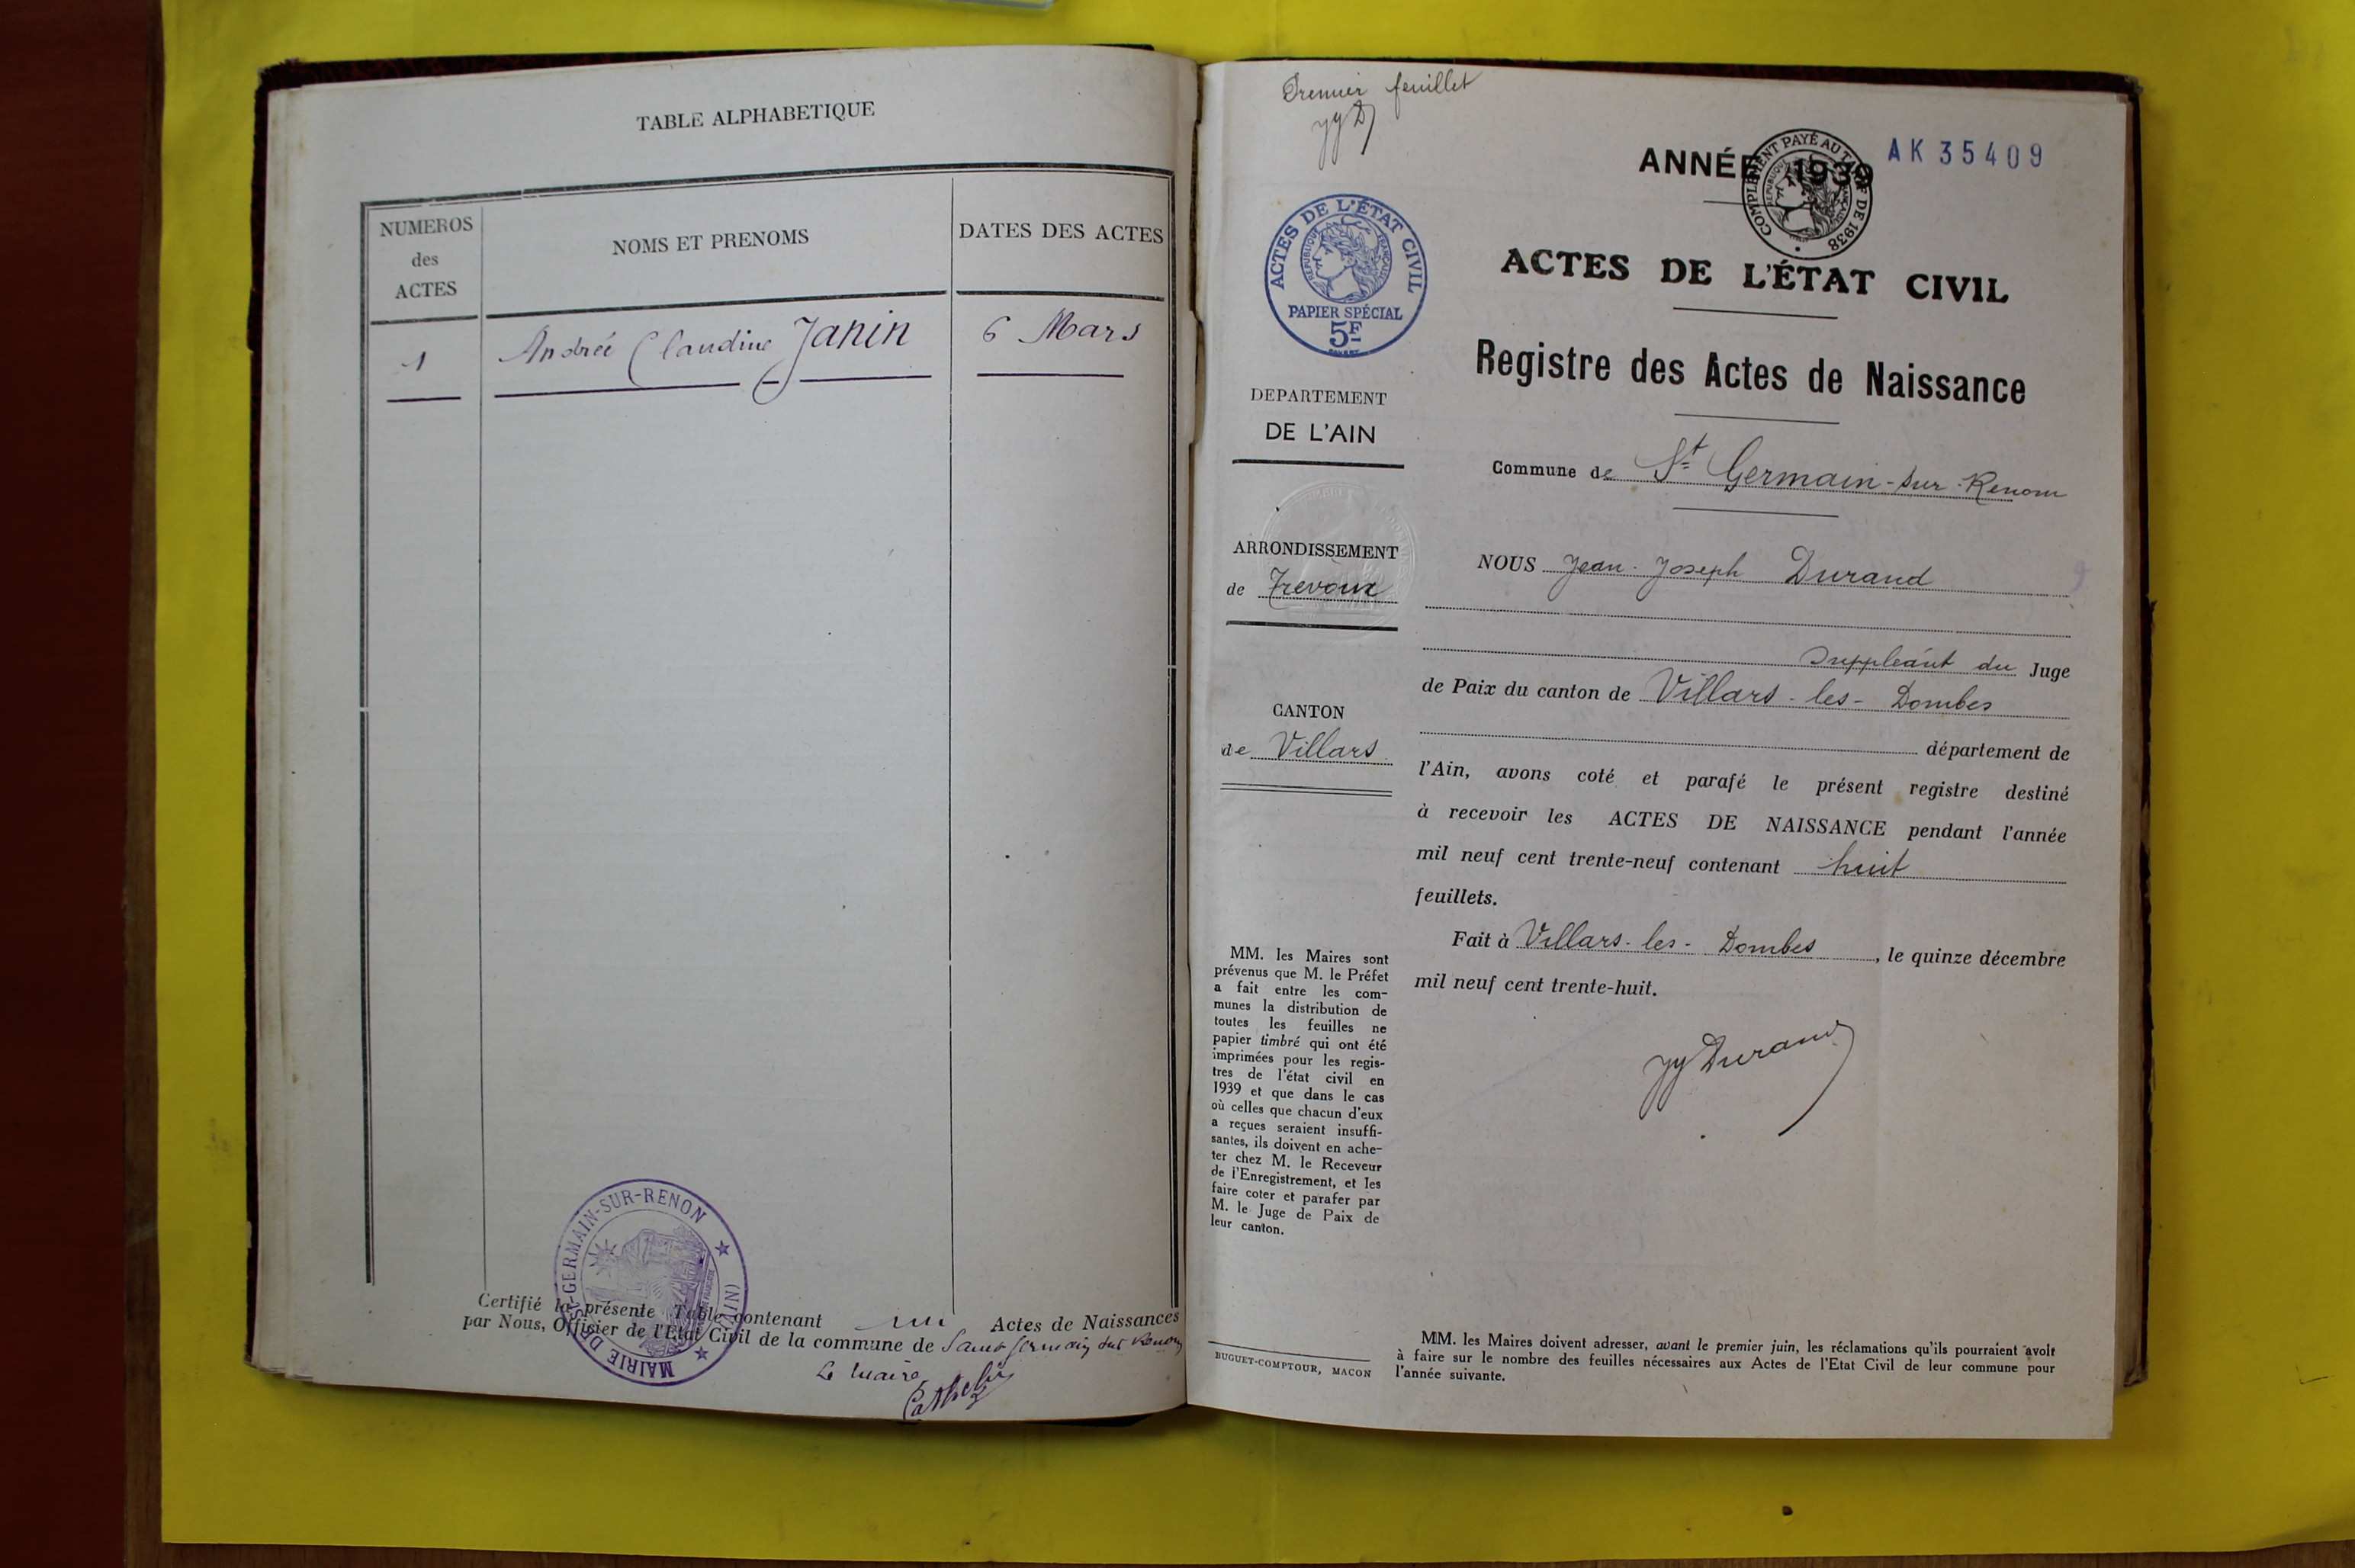 TABLE ALPHABETIQUE
NUMEROS
des
ACTES
NOMS ET PRENOMS
DATES DES ACTES
1
Andrée Claudine Janin
6 Mars
MAIRIE DE ST-GERMAIN-SUR-RENON
(AIN)
Certifié la présente Table contenant un Actes de Naissances
par Nous, Officier de l'Etat Civil de la commune de Saint Germain sur Renon
Le Maire
Premier feuillet
JJD
ANNÉE 1939
COMPLÉMENT PAYÉ AU TARIF DE 1938
AK 35409
ACTES DE L'ÉTAT CIVIL
RÉPUBLIQUE FRANÇAISE
PAPIER SPÉCIAL
5F
ACTES DE L'ÉTAT CIVIL
Registre des Actes de Naissance
DEPARTEMENT
DE L'AIN
Commune de St Germain-sur-Renom
ARRONDISSEMENT
de Trevoux
CANTON
de Villars
NOUS Jean-Joseph Durand
Suppleant du Juge
de Paix du canton de Villars-les-Dombes
département de
l'Ain, avons coté et parafé le présent registre destiné
à recevoir les ACTES DE NAISSANCE pendant l'année
mil neuf cent trente-neuf contenant huit
feuillets.
Fait à Villars-les-Dombes, le quinze décembre
mil neuf cent trente-huit.
JJDurand
MM. les Maires sont
prévenus que M. le Préfet
a fait entre les com-
munes la distribution de
toutes les feuilles ne
papier timbré qui ont été
imprimées pour les regis-
tres de l'état civil en
1939 et que dans le cas
où celles que chacun d'eux
a reçues seraient insuffi-
santes, ils doivent en ache-
ter chez M. le Receveur
de l'Enregistrement, et les
faire coter et parafer par
M. le Juge de Paix de
leur canton.
BUGUET-COMPTOUR, MACON
MM. les Maires doivent adresser, avant le premier juin, les réclamations qu'ils pourraient avoit
à faire sur le nombre des feuilles nécessaires aux Actes de l'Etat Civil de leur commune pour
l'année suivante.